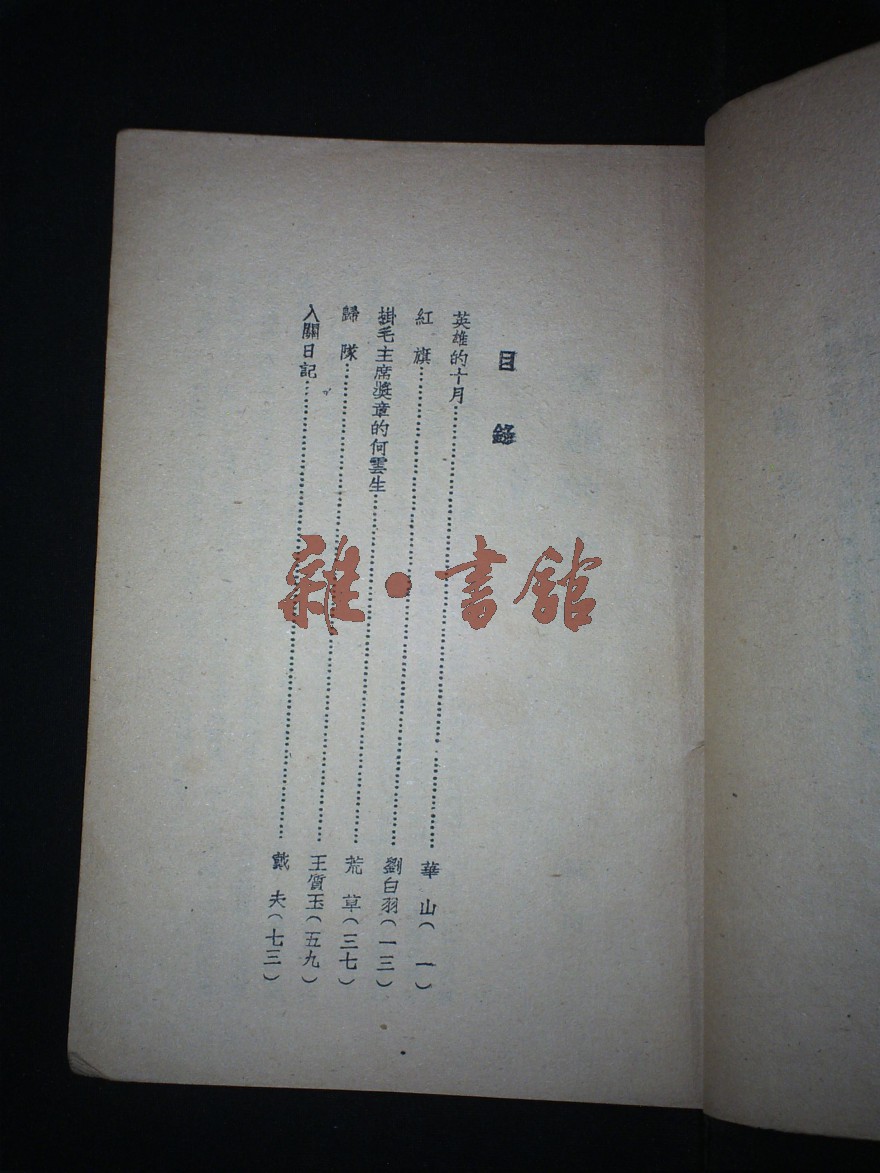 目錄
英雄的十月…………華山(一)
紅旗…………劉白羽(一三)
掛毛主席獎章的何雲生…………荒草(三七)
歸隊…………王質玉(五九)
入關日記…………戴夫(七三)
雜·書館